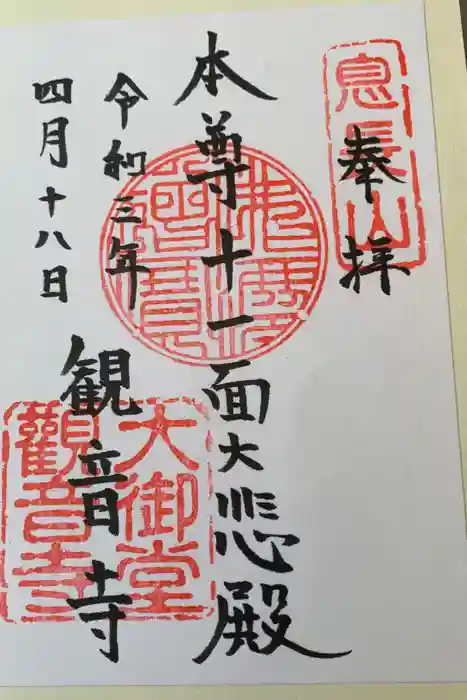 奉拝
息長山
本尊十一面大悲殿
佛法僧寶
令和三年
四月十八日
観音寺
大御堂
觀音寺